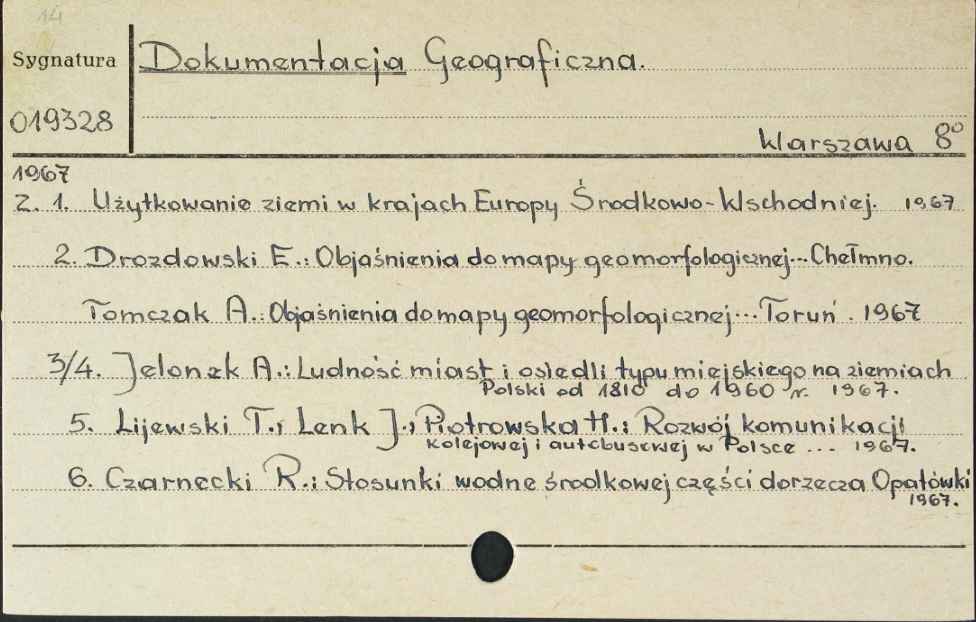 14
Sygnatura
Dokumentacja Geograficzna.
019328
Warszawa 8°
1967
z. 1. Użytkowanie ziemi w krajach Europy Środkowo-Wschodniej. 1967
2. Drozdowski E.: Objaśnienia do mapy geomorfologicznej... Chełmno.
Tomczak A.: Objaśnienia do mapy geomorfologicznej... Toruń. 1967
3/4. Jelonek A.: Ludność miast i osiedli typu miejskiego na ziemiach
Polski od 1810 do 1960 r. 1967.
5. Lijewski T.; Lenk J.; Piotrowska H.: Rozwój komunikacji
kolejowej i autobusowej w Polsce ... 1967.
6. Czarnecki R.: Stosunki wodne środkowej części dorzecza Opatówki
1967.